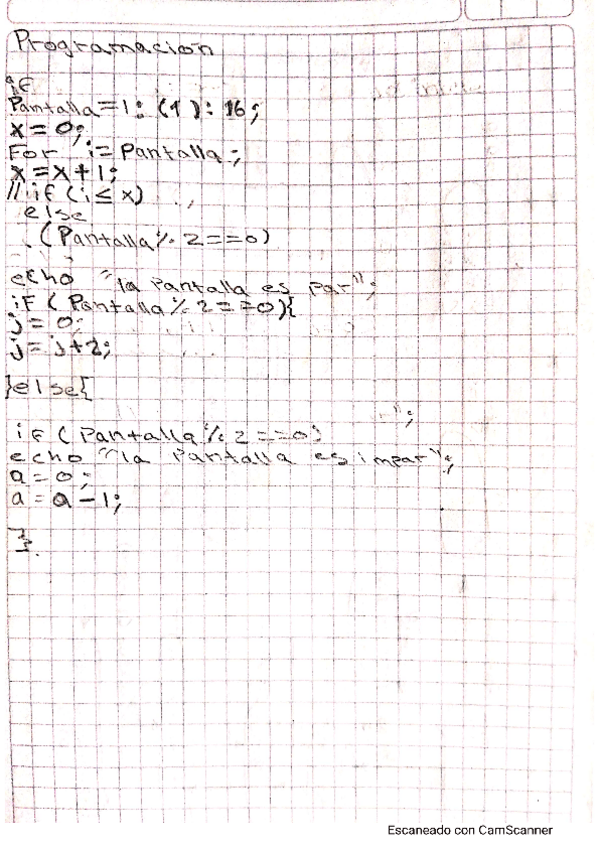 Programacion
if
Pantalla = 1: (1): 16;
x = 0;
For i = Pantalla;
x = x + 1;
// if (i ≤ x)
else
(Pantalla % 2 == 0)
echo "la pantalla es par";
if (Pantalla % 2 == 0){
j = 0;
j = j + 2;
}else{
";
if (Pantalla % 2 == 0)
echo "la Pantalla es impar";
a = 0;
a = a - 1;
}.
Escaneado con CamScanner